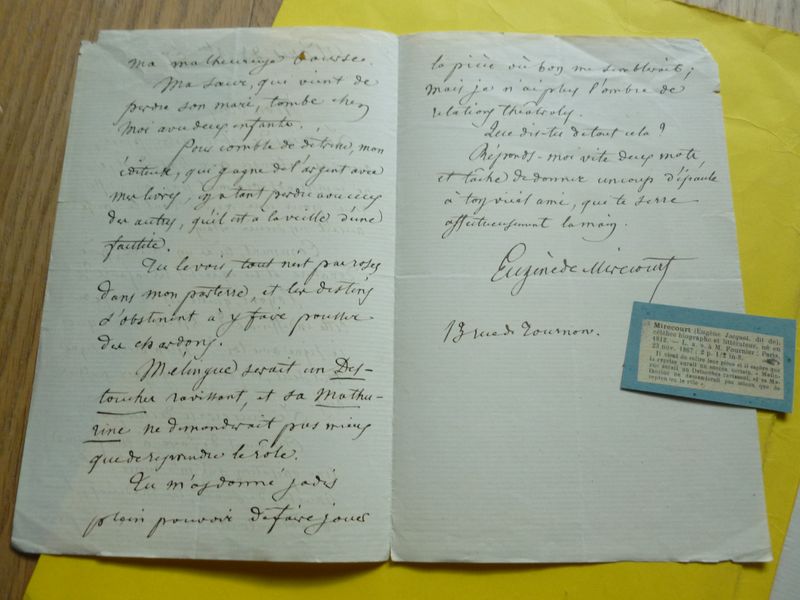 ma malheureuse bourse.
Ma sœur, qui vient de
perdre son mari, tombe chez
moi avec deux enfants.
Pour comble de détresse, mon
éditeur, qui gagne de l'argent avec
mes livres, en a tant perdu avec ceux
des autres, qu'il est à la veille d'une
faillite.
Tu le vois, tout n'est pas roses
dans mon parterre, et les destins
s'obstinent à y faire pousser
des chardons.
Mélingue serait un Des-
touches ravissant, et sa Mathu-
rine ne demanderait pas mieux
que de reprendre le rôle.
Tu m'as donné jadis
plein pouvoir de faire jouer
la pièce où bon me semblerait ;
mais je n'ai plus l'ombre de
relations théatrales.
Que dis-tu de tout cela ?
Réponds-moi vite deux mots,
et tâche de donner un coup d'épaule
à ton vieil ami, que te serre
affectueusement la main.
Eugène de Mirecourt
13 rue de Tournon.
Mirecourt (Eugène Jacquot, dit de),
célèbre biographe et littérateur, né en
1812. — L. a. s. à M. Fournier ; Paris,
23 nov. 1867 ; 2 p. 1/2 in-8.
Il vient de relire leur pièce et il espère que
la reprise aurait un succès certain. « Mélin-
gue serait un Destouches ravissant, et sa Ma-
thurine ne demanderait pas mieux que de
reprendre le rôle ».